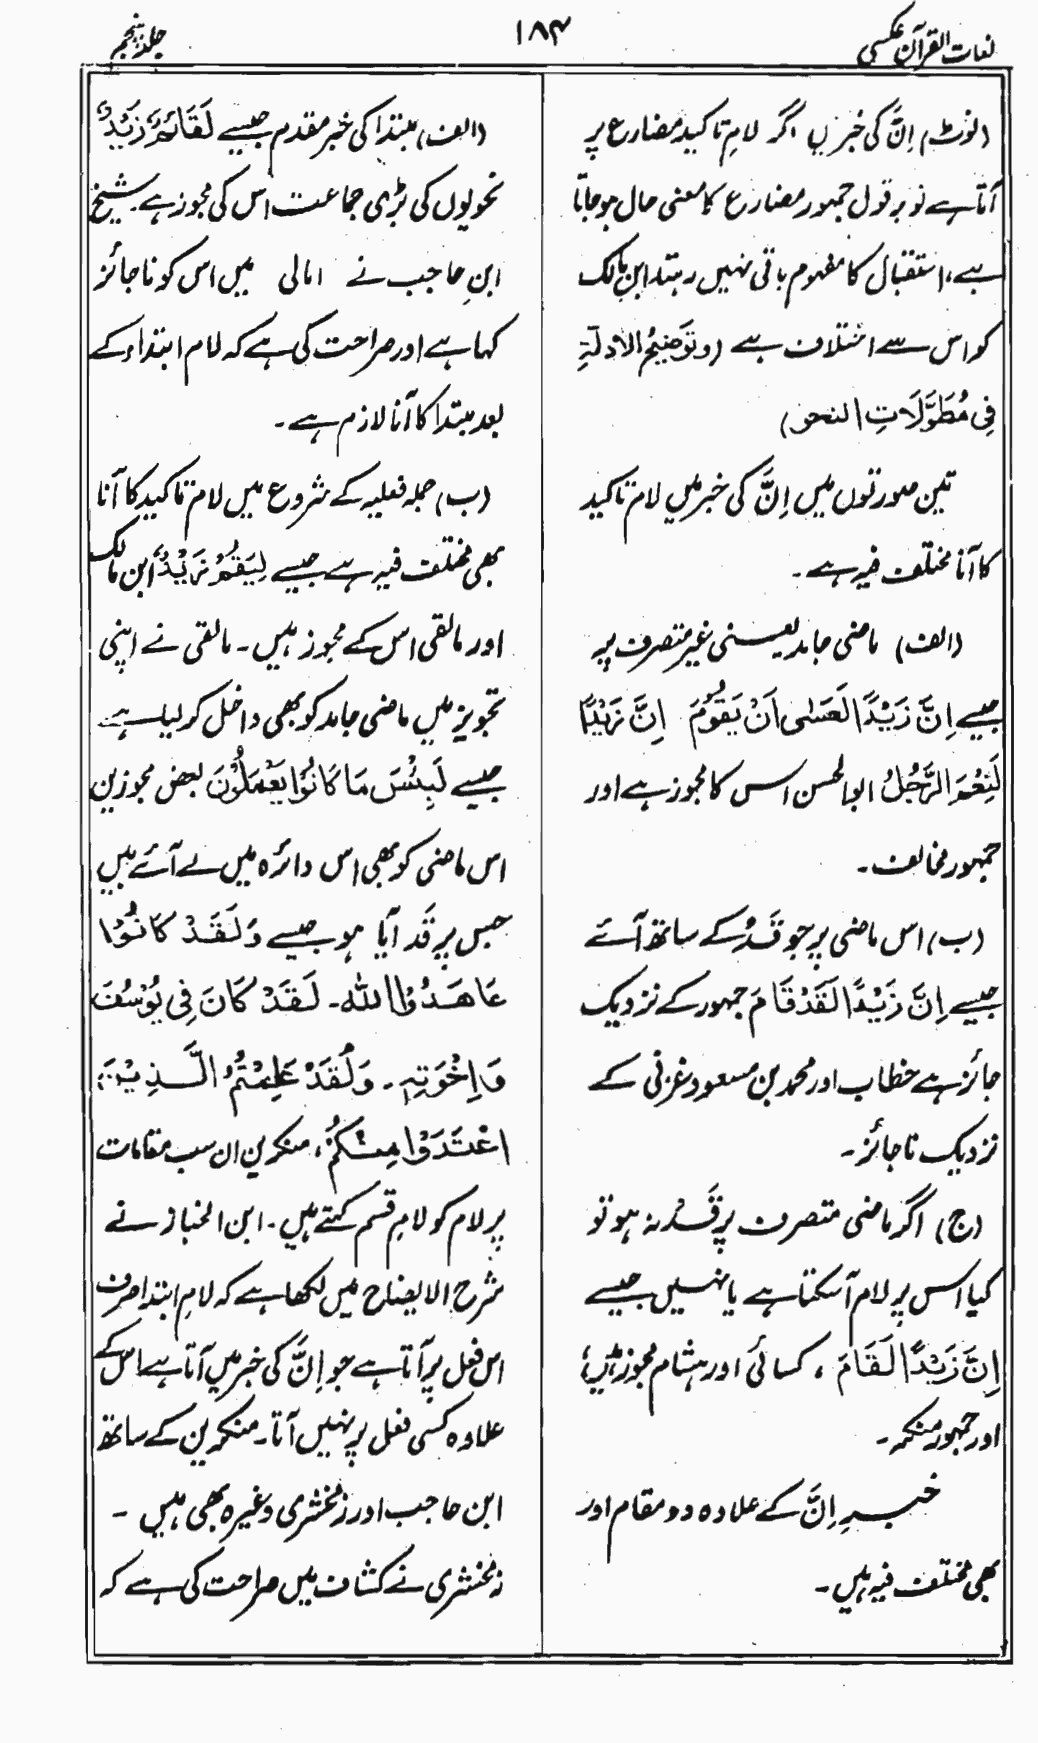 لغات القرآن عکسی
۱۸۴
جلد پنجم
(نوٹ) اِنَّ کی خبر یں اگر لامِ تاکید مضارع پر
آتا ہے تو بر قول جمہور مضارع کا معنی حال ہو جاتا
ہے، استقبال کا مفہوم باقی نہیں رہتا ابن مالک
کو اس سے اختلاف ہے (وتَوضِيحُ الادلّةِ
فِي مُطَوَّلَاتِ النحو)
تین صورتوں میں اِنَّ کی خبر میں لام تاکید
کا آنا مختلف فیہ ہے۔
(الف) ماضی جامد یعنی غیر متصرف پر
جیسے اِنَّ زَيْدًا لَعَسٰی اَنْ يَقُوْمَ اِنَّ زَيْدًا
لَنِعْمَ الرَّجُلُ ابوالحسن اس کا مجوز ہے اور
جمہور مخالف۔
(ب) اس ماضی پر جو قَدْ کے ساتھ آئے
جیسے اِنَّ زَيْدًا لَقَدْ قَامَ جمہور کے نزدیک
جائز ہے خطاب اور محمد بن مسعود غزنی کے
نزدیک ناجائز۔
(ج) اگر ماضی متصرف پر قَدْ نہ ہو تو
کیا اس پر لام آسکتا ہے یا نہیں جیسے
اِنَّ زَيْدًا لَقَامَ ، کسائی اور ہشام مجوز ہیں،
اور جمہور منکر۔
خبرِ اِنَّ کے علاوہ دو مقام اور
بھی مختلف فیہ ہیں۔
(الف) مبتدا کی خبر مقدم جیسے لَقَائِمٌ زَيْدٌ
نحویوں کی بڑی جماعت اس کی مجوز ہے شیخ
ابن حاجب نے امالی میں اس کو ناجائز
کہا ہے اور صراحت کی ہے کہ لام ابتداء کے
بعد مبتدا کا آنا لازم ہے۔
(ب) جملہ فعلیہ کے شروع میں لام تاکید کا آنا
بھی مختلف فیہ ہے جیسے لِيَقُمْ زَيْدٌ ابن مالک
اور مالقی اس کے مجوز ہیں۔ مالقی نے اپنی
تجویز میں ماضی جامد کو بھی داخل کر لیا ہے
جیسے لَبِئْسَ مَا كَانُوْا يَعْمَلُوْنَ بعض مجوزین
اس ماضی کو بھی اس دائرہ میں لے آئے ہیں
جس پر قَد آیا ہو جیسے وَلَقَدْ كَانُوْا
عَاهَدُوْا اللهَ۔ لَقَدْ كَانَ فِي يُوْسُفَ
وَاِخْوَتِهٖ۔ وَلَقَدْ عَلِمْتُمُ الَّذِيْنَ
اعْتَدَوْا مِنْكُمْ، منکرین ان سب مقامات
پر لام کو لامِ قسم کہتے ہیں۔ ابن الخباز نے
شرح الایضاح میں لکھا ہے کہ لامِ ابتدا صرف
اس فعل پر آتا ہے جو اِنَّ کی خبر میں آتا ہے اس کے
علاوہ کسی فعل پر نہیں آتا۔ منکرین کے ساتھ
ابن حاجب اور زمخشری وغیرہ بھی ہیں۔
زمخشری نے کشاف میں صراحت کی ہے کہ